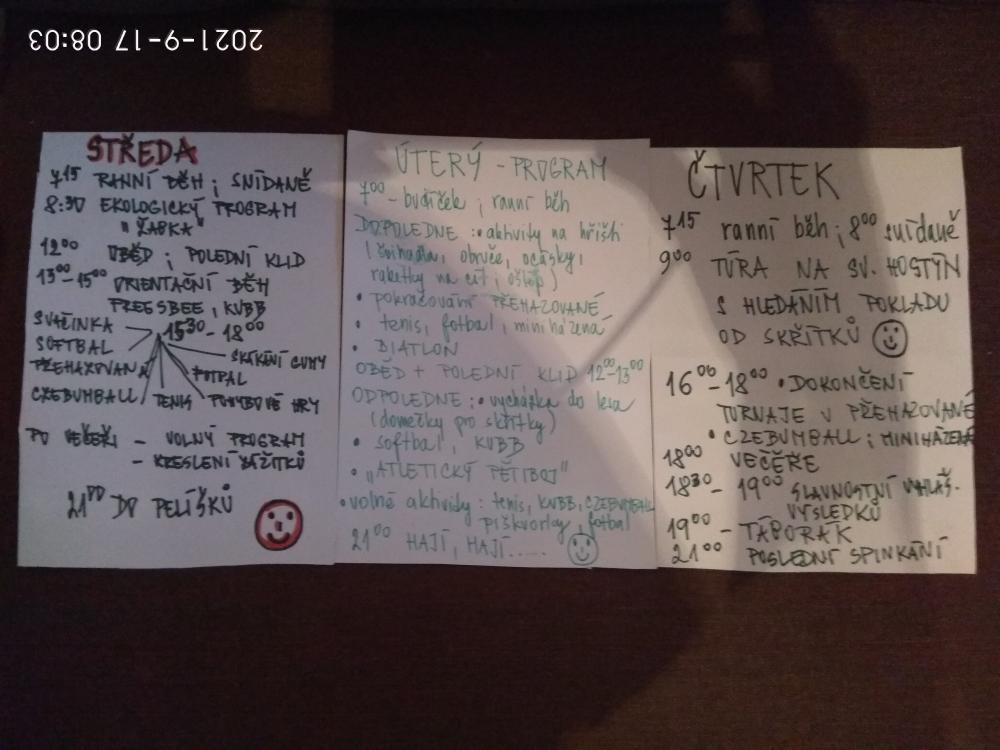 2021-9-17 08:03
STŘEDA
7¹⁵ RANNÍ BĚH ; SNÍDANĚ
8:30 EKOLOGICKÝ PROGRAM
"ŽABKA"
12⁰⁰ OBĚD ; POLEDNÍ KLID
13⁰⁰-15⁰⁰ ORIENTAČNÍ BĚH
FREESBEE, KUBB
SVAČINKA 15³⁰ - 18⁰⁰
SOFTBAL SKÁKÁNÍ GUMY
PŘEHAZOVANÁ FOTBAL
CZEBUMBALL TENIS POHYBOVÉ HRY
PO VEČEŘI - VOLNÝ PROGRAM
- KRESLENÍ ZÁŽITKŮ
21⁰⁰ DO PELÍŠKŮ
ÚTERÝ - PROGRAM
7⁰⁰ - budíček ; ranní běh
DOPOLEDNE : • aktivity na hřišti
(švihadla, obruče, ocásky,
raketky na cíl ; oštěp)
• pokračování PŘEHAZOVANÉ
• tenis, fotbal, miniházená
• BIATLON
OBĚD + POLEDNÍ KLID 12⁰⁰-13⁰⁰
ODPOLEDNE : • vycházka do lesa
(domečky pro skřítky)
• softbal, KUBB
• „ATLETICKÝ PĚTIBOJ"
• volné aktivity : tenis, KUBB, CZEBUMBALL
piškvorky, fotbal
21⁰⁰ HAJÍ, HAJÍ.....
ČTVRTEK
7¹⁵ ranní běh ; 8⁰⁰ snídaně
9⁰⁰ TÚRA NA SV. HOSTÝN
S HLEDÁNÍM POKLADU
OD SKŘÍTKŮ
16⁰⁰-18⁰⁰ • DOKONČENÍ
TURNAJE V PŘEHAZOVANÉ
• CZEBUMBALL ; MINIHÁZENÁ
18⁰⁰ VEČEŘE
18³⁰ - 19⁰⁰ SLAVNOSTNÍ VYHLÁŠ.
VÝSLEDKŮ
19⁰⁰ - TÁBORÁK
21⁰⁰ POSLEDNÍ SPINKÁNÍ